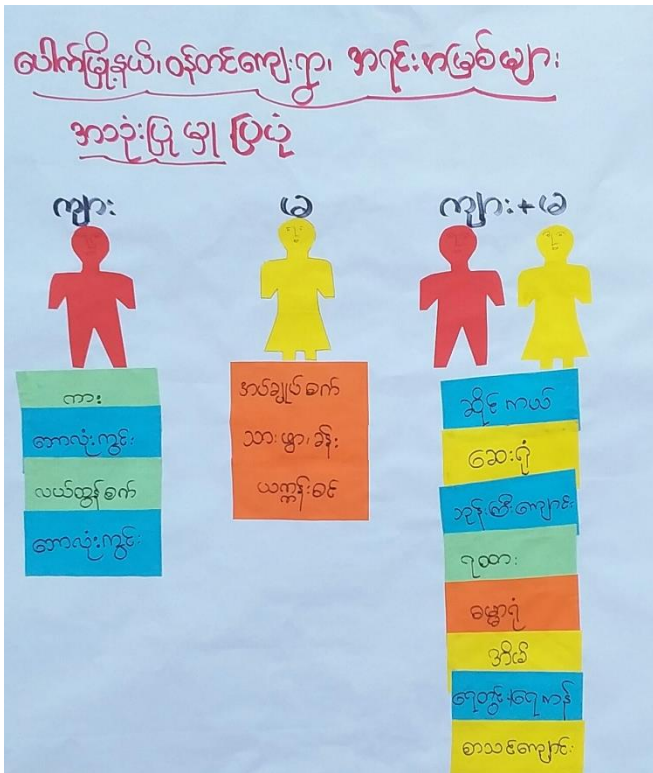 ပေါက်မြို့နယ်၊ ဝန်တင်ကျေးရွာ၊ အရင်းအမြစ်များ
အသုံးပြု မှု ပြပုံ
ကျား
မ
ကျား+မ
ကား
ဘောလုံးကွင်း
လယ်ထွန်စက်
ဘောလုံးကွင်း
အပ်ချုပ်စက်
သားဖွားခန်း
ယက္ကန်းစင်
ဆိုင်ကယ်
ဆေးရုံ
ဘုန်းကြီးကျောင်း
ရထား
ဓမ္မာရုံ
အိမ်
ရေတွင်း/ရေကန်
စာသင်ကျောင်း